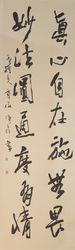 眞心自在施無畏
妙法圓通度有情